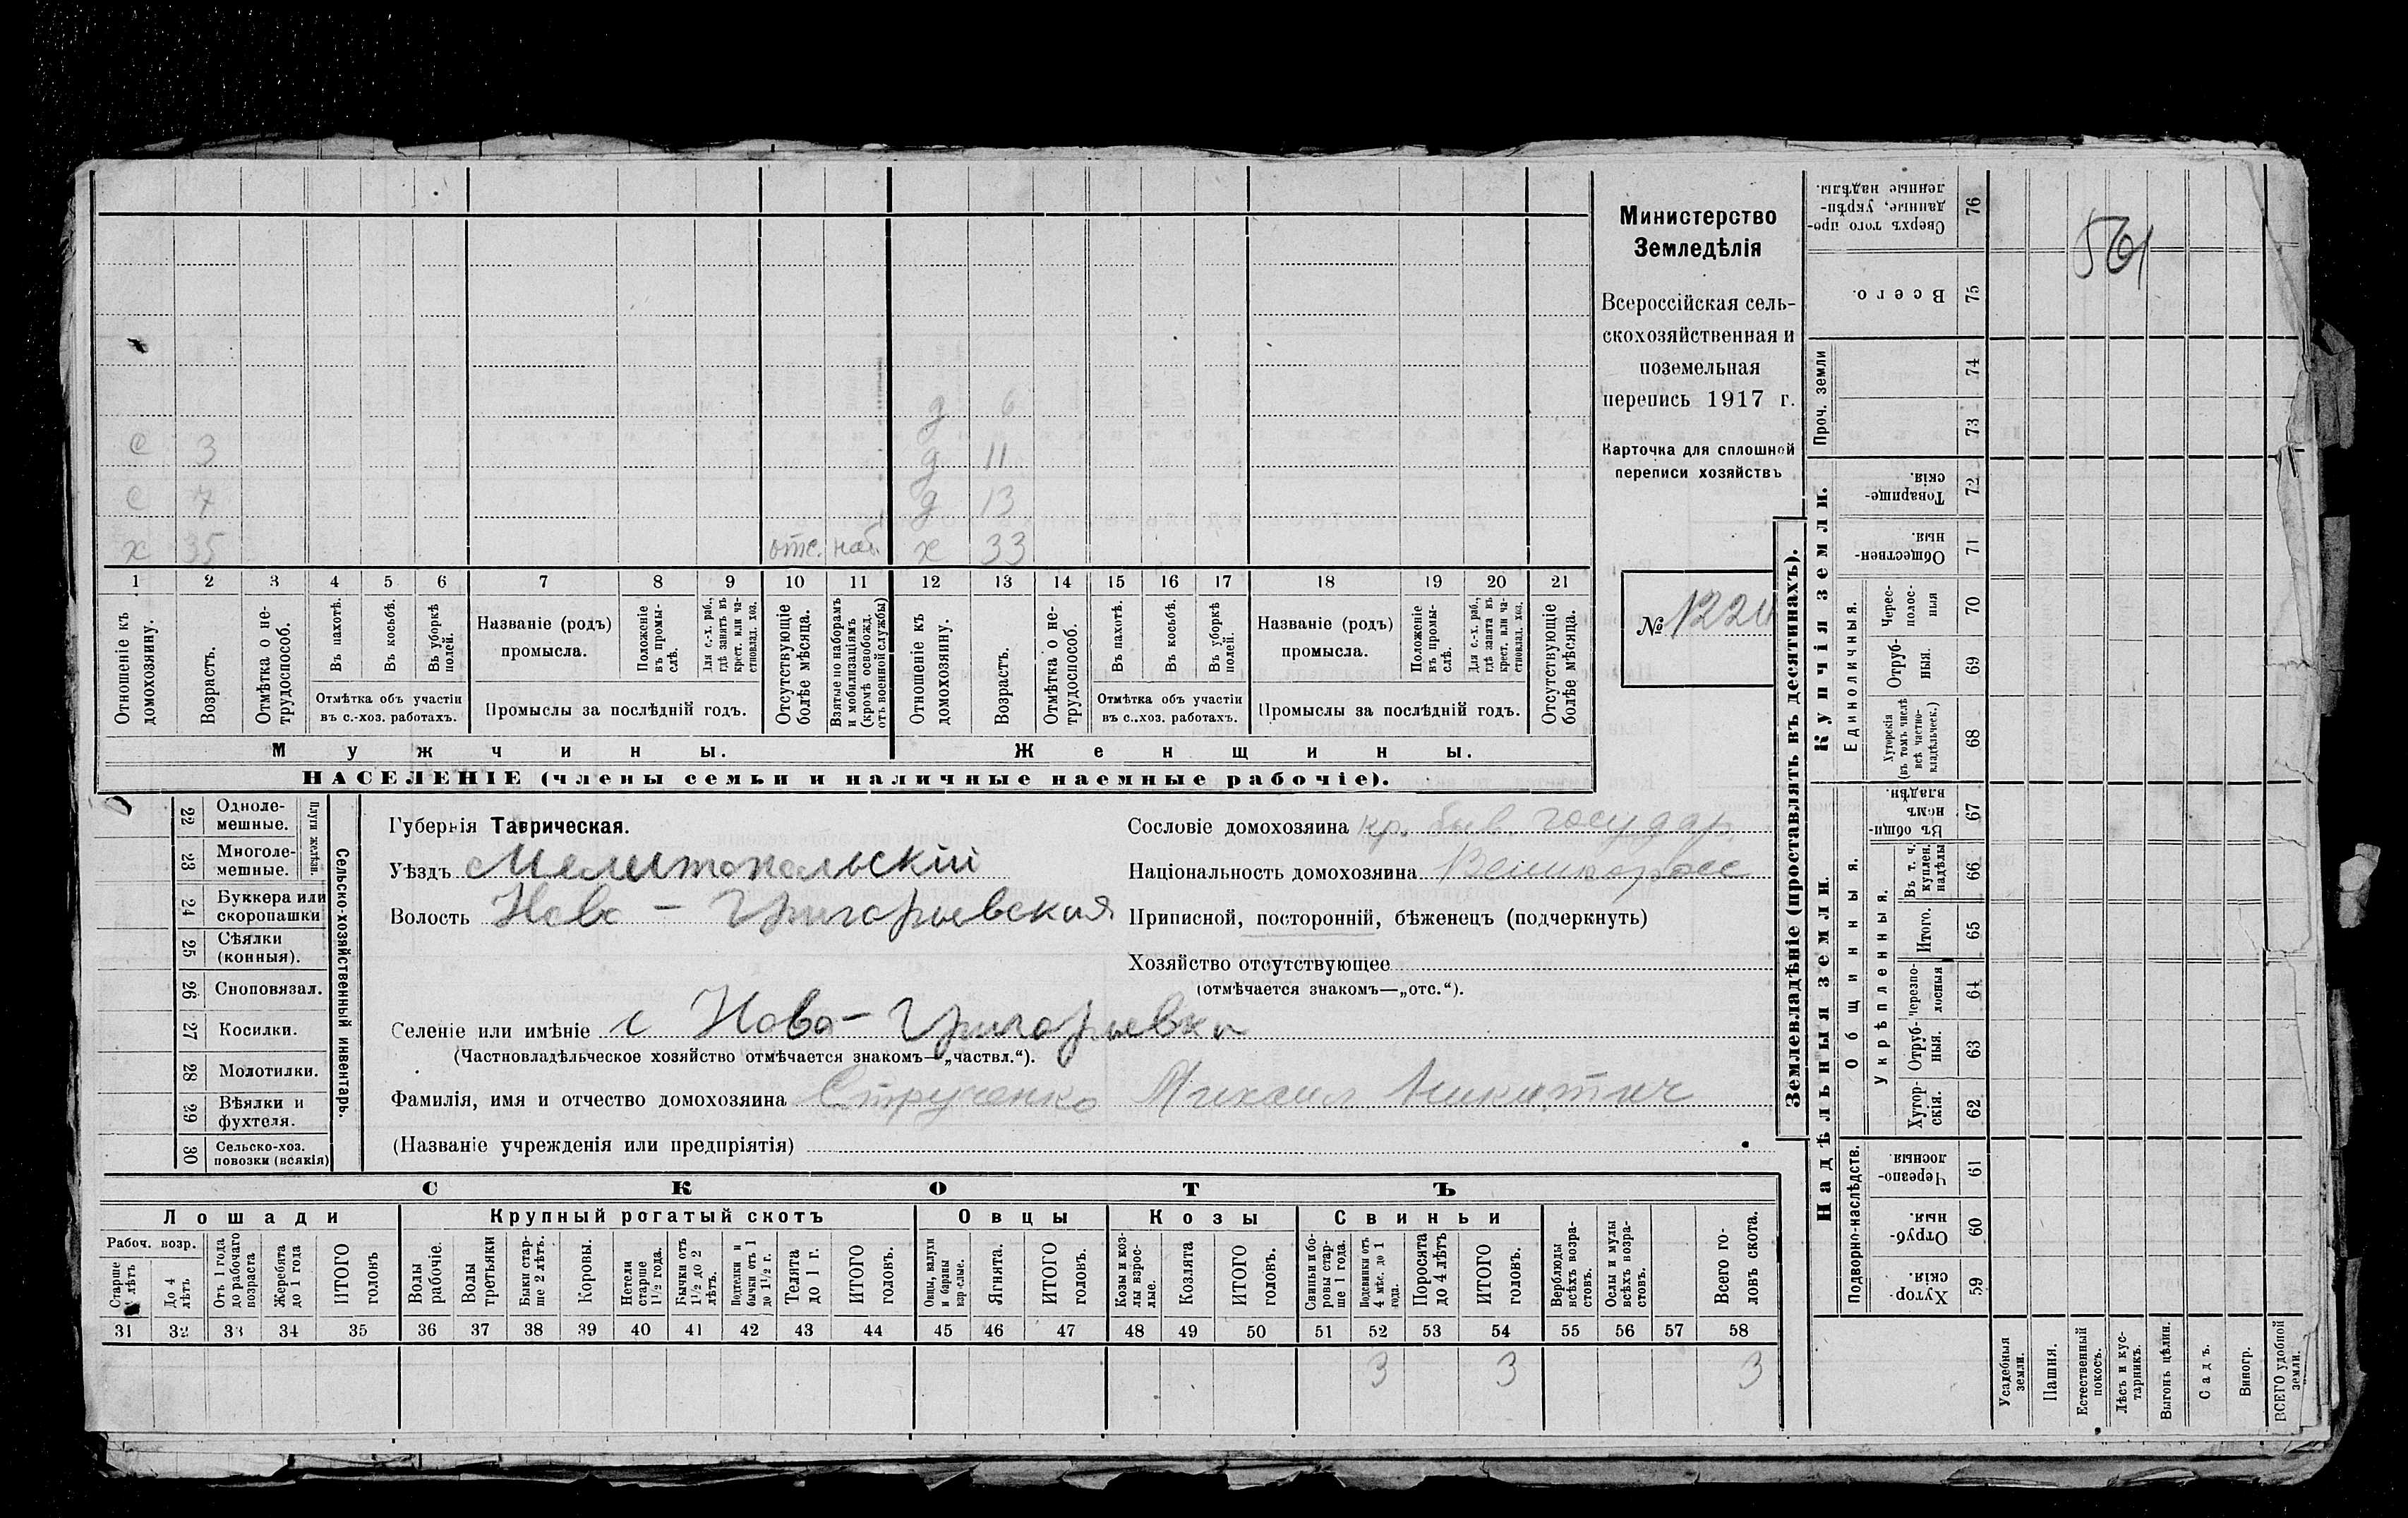 Министерство
Земледѣлія
Всероссійская сель-
скохозяйственная и
поземельная
перепись 1917 г.
Карточка для сплошной
переписи хозяйствъ
№ 122
561
д 6
С 3 д 11
С 7 д 13
х 35 отс. наб. х 33
1 2 3 4 5 6 7 8 9 10 11 12 13 14 15 16 17 18 19 20 21
Отношеніе къ домохозяину.
Возрастъ.
Отмѣтка о не-трудоспособ.
Въ пахотѣ.
Въ косьбѣ.
Въ уборкѣ полей.
Отмѣтка объ участіи въ с.-хоз. работахъ.
Названіе (родъ) промысла.
Положеніе въ промы-слѣ.
Для с.-х. раб., гдѣ занятъ въ крест. или ча-стновлад. хоз.
Промыслы за послѣдній годъ.
Отсутствующіе болѣе мѣсяца.
Взятые по наборамъ и мобилизаціямъ (кромѣ освобожд. отъ военной службы)
Отношеніе къ домохозяину.
Возрастъ.
Отмѣтка о не-трудоспособ.
Въ пахотѣ.
Въ косьбѣ.
Въ уборкѣ полей.
Отмѣтка объ участіи въ с.-хоз. работахъ.
Названіе (родъ) промысла.
Положеніе въ промы-слѣ.
Для с.-х. раб., гдѣ занята въ крест. или ча-стновлад. хоз.
Промыслы за послѣдній годъ.
Отсутствующіе болѣе мѣсяца.
Мужчины. Женщины.
НАСЕЛЕНІЕ (члены семьи и наличные наемные рабочіе).
Сельско-хозяйственный инвентарь.
Плуги желѣзн.
22 Одноле-мешные.
23 Многоле-мешные.
24 Буккера или скоропашки
25 Сѣялки (конныя).
26 Сноповязал.
27 Косилки.
28 Молотилки.
29 Вѣялки и фухтеля.
30 Сельско-хоз. повозки (всякія)
Губернія Таврическая.
Уѣздъ Мелитопольскій
Волость Ново-Григорьевская
Сословіе домохозяина кр. быв. государ.
Національность домохозяина Великоросс
Приписной, посторонній, бѣженецъ (подчеркнуть)
Хозяйство отсутствующее
(отмѣчается знакомъ—„отс.“).
Селеніе или имѣніе с Ново-Григорьевка
(Частновладѣльческое хозяйство отмѣчается знакомъ—„частвл.“).
Фамилія, имя и отчество домохозяина Струченко Михаил Никитич
(Названіе учрежденія или предпріятія)
СКОТЪ
Лошади Крупный рогатый скотъ Овцы Козы Свиньи
Рабоч. возр.
Старше лѣтъ
До 4 лѣтъ
Отъ 1 года до рабочаго возраста
Жеребята до 1 года
ИТОГО головъ
Волы рабочіе.
Волы третьяки
Быки стар-ше 2 лѣтъ.
Коровы.
Нетели старше 1½ года.
Бычки отъ 1½ до 2 лѣтъ.
Подтелки и бычки отъ 1 до 1½ г.
Телята до 1 г.
ИТОГО головъ.
Овцы, валухи и бараны взрослые.
Ягнята.
ИТОГО головъ.
Козы и коз-лы взрос-лые.
Козлята
ИТОГО головъ.
Свиньи и бо-ровы стар-ше 1 года.
Подсвинки отъ 4 мѣс. до 1 года.
Поросята до 4 лѣтъ
ИТОГО головъ.
Верблюды всѣхъ возра-стовъ.
Ослы и мулы всѣхъ возра-стовъ.
Всего го-ловъ скота.
31 32 33 34 35 36 37 38 39 40 41 42 43 44 45 46 47 48 49 50 51 52 53 54 55 56 57 58
3 3 3
Землевладѣніе (проставлять въ десятинахъ).
Купчія земли.
Надѣльныя земли.
Сверхъ того про-данные, укрѣп-ленные надѣлы. 76
Всего. 75
Проч. земли
74
73
Товарище-скія. 72
Обществен-ныя. 71
Единоличныя.
Черес-полос-ныя 70
Отруб-ныя. 69
Хуторскія (въ томъ числѣ всѣ частно-владѣльческ.) 68
Общинныя.
Въ общи-номъ владѣн. 67
Укрѣпленныя.
Въ т. ч. куплен. надѣлы 66
Итого. 65
Черезпо-лосныя 64
Отруб-ныя. 63
Хутор-скія. 62
Подворно-наслѣдств.
Черезпо-лосныя 61
Отруб-ныя. 60
Хутор-скія. 59
Усадебныя земли.
Пашня.
Естественный покосъ.
Лѣсъ и кус-тарникъ.
Выгонъ цѣлин.
Садъ.
Виногр.
ВСЕГО удобной земли.